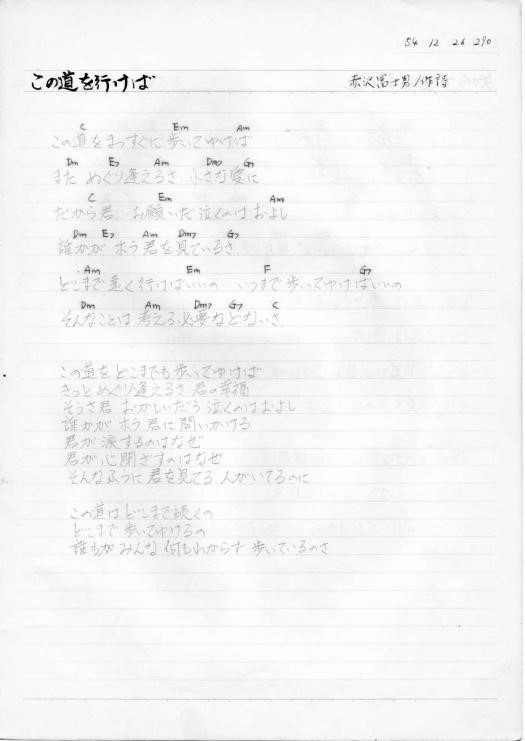 54 12 26 290
この道を行けば
赤沢冨士男/作詩
C Em Am
この道をまっすぐに 歩いてゆけば
Dm E7 Am Dm7 G7
また めぐり逢えるさ 小さな愛に
C Em Am
だから君、お願いだ 泣くのはおよし
Dm E7 Am Dm7 G7
誰かが ホラ 君を見ているさ
Am Em F G7
どこまで 遠く行けばいいの いつまで 歩いてゆけばいいの
Dm Am Dm7 G7 C
そんなことは 考える必要などないさ
この道を どこまでも 歩いてゆけば
きっと めぐり逢えるさ 君の幸福
そうさ君 おかしいだろ 泣くのはおよし
誰かが ホラ 君に 問いかける
君が 涙するのはなぜ
君が 心閉ざすのはなぜ
そんなふうに 君を見てる 人がいてるのに
この道は どこまで続くの
どこまで 歩いてゆけるの
誰もが みんな 何もわからず 歩いているのさ